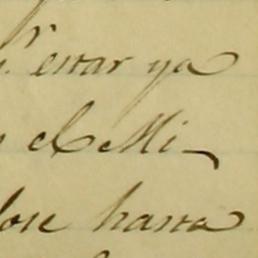 estar ya
el Mi-
hasta